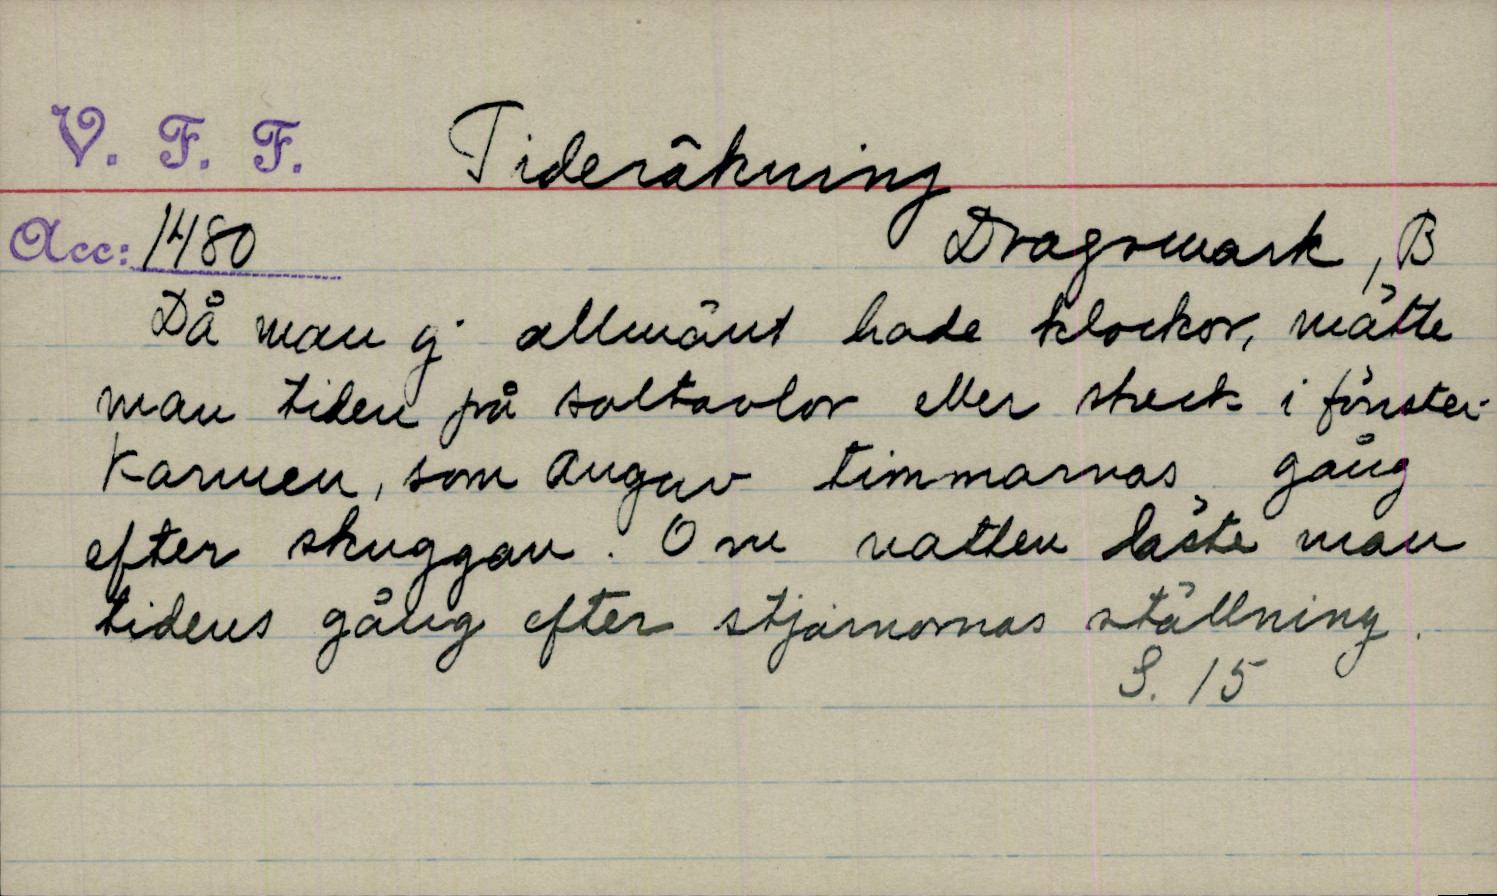 V. F. F. Tideräkning
Acc: 1480 Dragsmark, B
Då man ej allmänt hade klockor, mätte
man tiden på soltavlor eller streck i fönster-
karmen, som angav timmarnas gång
efter skuggan. Om natten läste man
tidens gång efter stjärnornas ställning.
S. 15